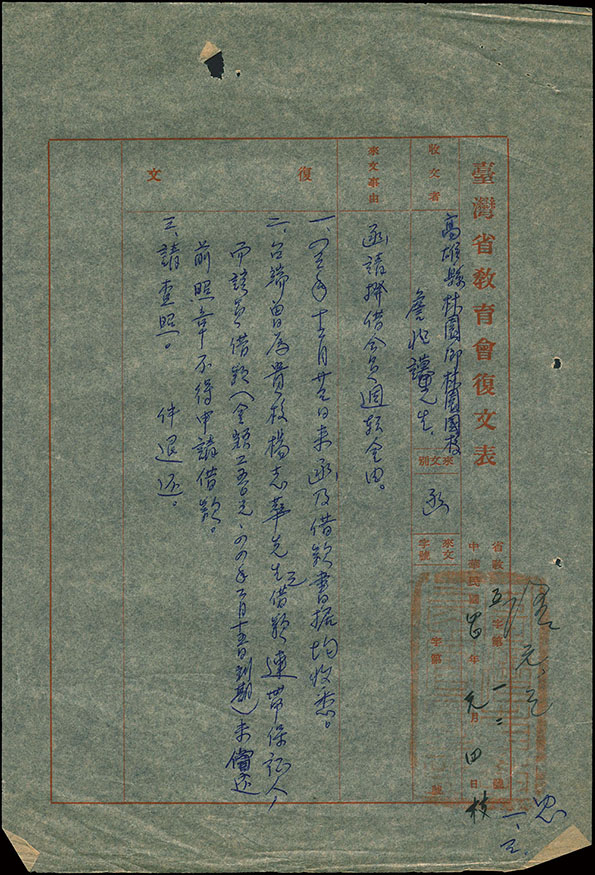 臺灣省教育會復文表
省教五字第一二號
中華民國 年元月四日
收文者
高雄縣林園鄉林園國校
詹兆謨先生
來文別
函
來文字號
字第 號
來文事由
函請拼借會員週轉金由。
復文
一、 年十二月廿 日來函及借款書據均收悉。
二、台端曾為貴校楊志華先生借款之連帶保証人,
而該員借款(金額 五百元、四四年 月十五日到期)未償還
前照章不得申請借款。
三、請查照。 件退还。